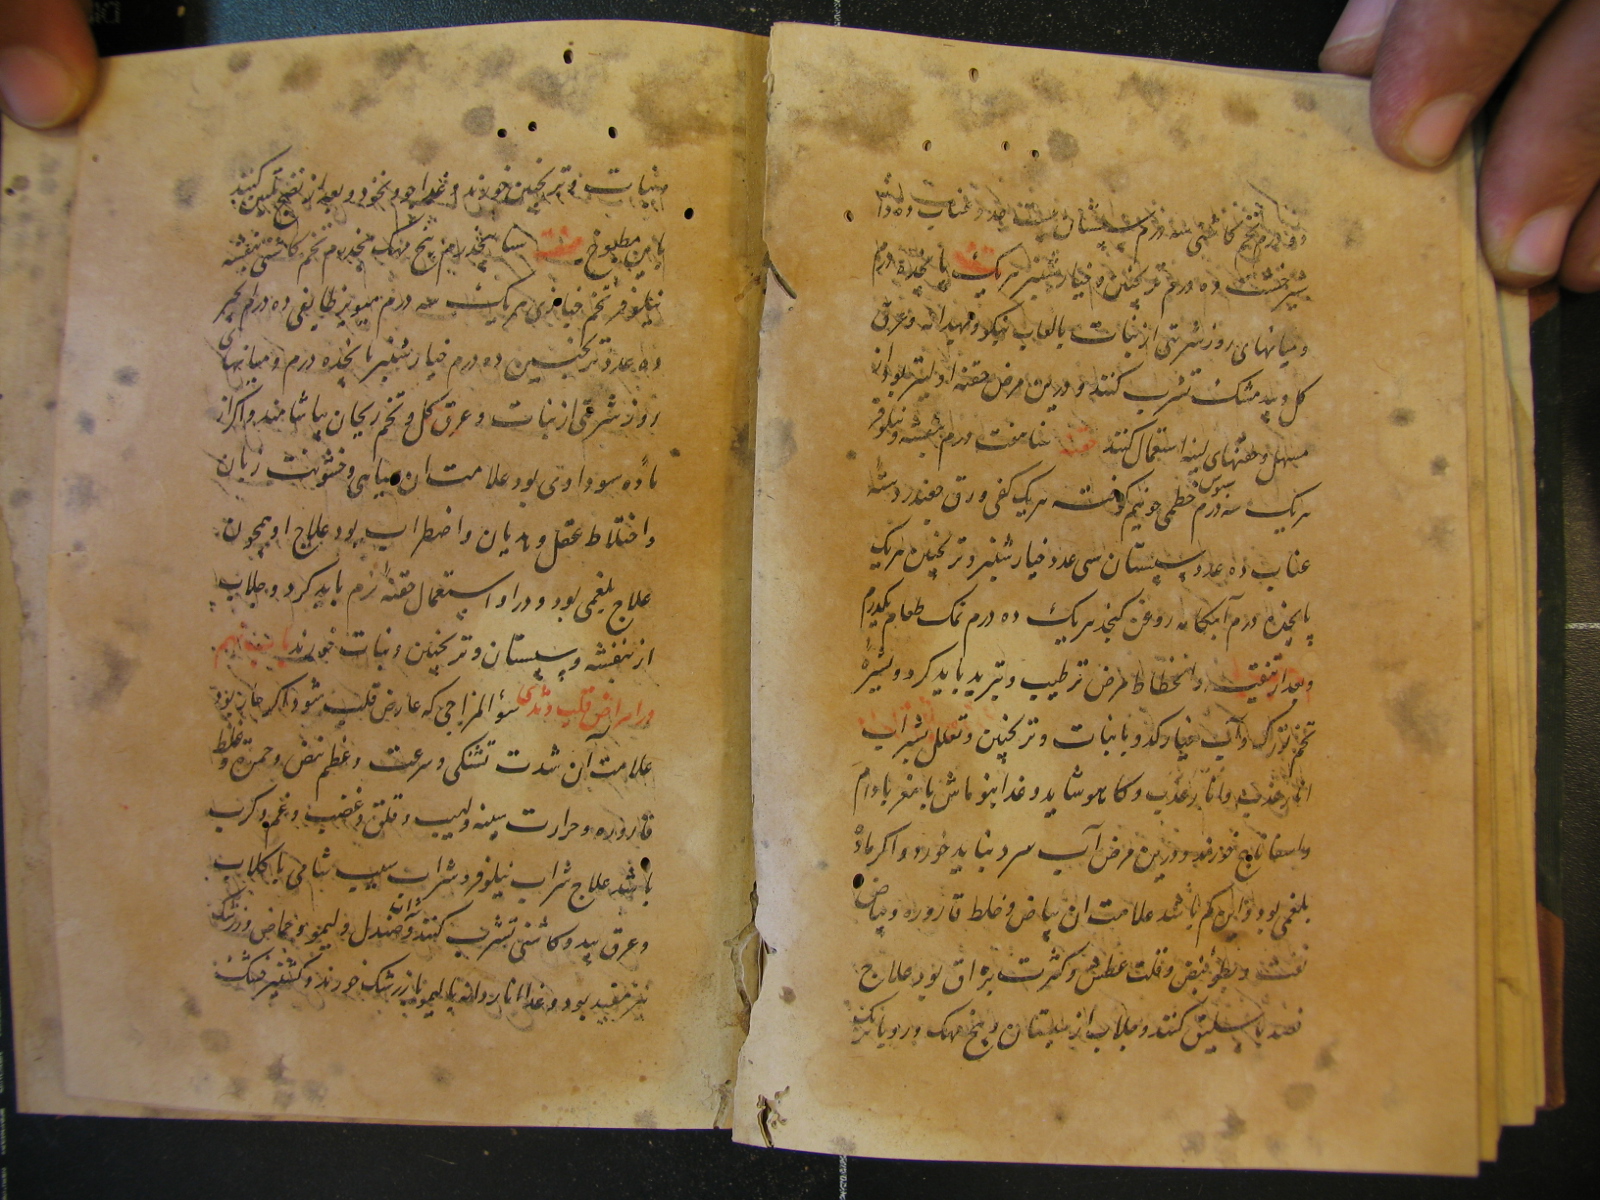 دو درم تخم کاسنی سه درم سپستان بیست عدد عناب ده دانه
شیرخشت ده درم ترنجبین و خیارشنبر هریک پانزده درم
و میانهای روز شربتی از نبات بالعاب نیکو و بهدانه و عرق
کل و بیدمشک تشرب کنند و درین مرض حقنه اولیتر بود از
مسهل و حقنهای لینه استعمال کنند حقنه سنا هفت درم بنفشه و نیلوفر
هریک سه درم سبوس خطمی جو نیم کوفته هریک کفی ورق چغندر دسته
عناب ده عدد سپستان سی عدد خیارشنبر و ترنجبین هریک
پانجده درم آبکامه روغن کنجد هریک ده درم نمک طعام یکدرم
و بعد از تنقیه و انحطاط مرض ترطیب و تبرید باید کرد و بشیره
تخم بزرک و آب خیار کدو با نبات و ترنجبین و تعلل بشراب
انار عذب و کاهو شاید و غذا بنوماش با مغز بادام
و اسفاناخ خورند و درین مرض آب سرد نباید خورد و اکر ماده
بلغمی بود و این کم باشد علامت ان بیاض و غلظ قاروره و بیاض
نفث و بطوء نبض و قلت عطش و کثرت بزاق بود علاج
فصد باسلیق کنند و جلاب از سپستان و بیخ مهک و
نبات و ترنجبین خورند و غذا جو و نخود و بعد از نضج تلیین کنند
باین مطبوخ صفته سنا پنجدرم بیخ مهک پنجدرم تخم کاسنی بنفشه
نیلوفر تخم خبازی هریک سه درم مویز طایفی ده درم انجیر
ده عدد ترنجبین ده درم خیارشنبر پانجده درم و میانهای
روز شربتی از نبات و عرق کل و تخم ریحان بیاشامند و اکر از
ماده سوداوی بود علامت ان سیاهی و خشونت زبان
و اختلاط عقل و هذیان و اضطراب بود علاج او همچون
علاج بلغمی بود و درو استعمال حقنه نرم باید کرد و جلاب
از بنفشه و سپستان و ترنجبین و نبات خورند باب نهم
در امراض قلب و ثدی سوء المزاجی که عارض قلب شود اکر حار بود
علامت آن شدت تشنکی و سرعت و عظم نبض و حمرت و غلظ
قاروره و حرارت سینه و لهیب و قلق و غضب و غم و کرب
باشد علاج شراب نیلوفر و شراب سیب شامی با کلاب
و عرق بید و کاسنی تشرب کنند و شراب صندل و لیمو و حماض و زرشک
نیز مفید بود و غذا اناردانه یا لیمو یا زرشک خورند و کشنیز خشک